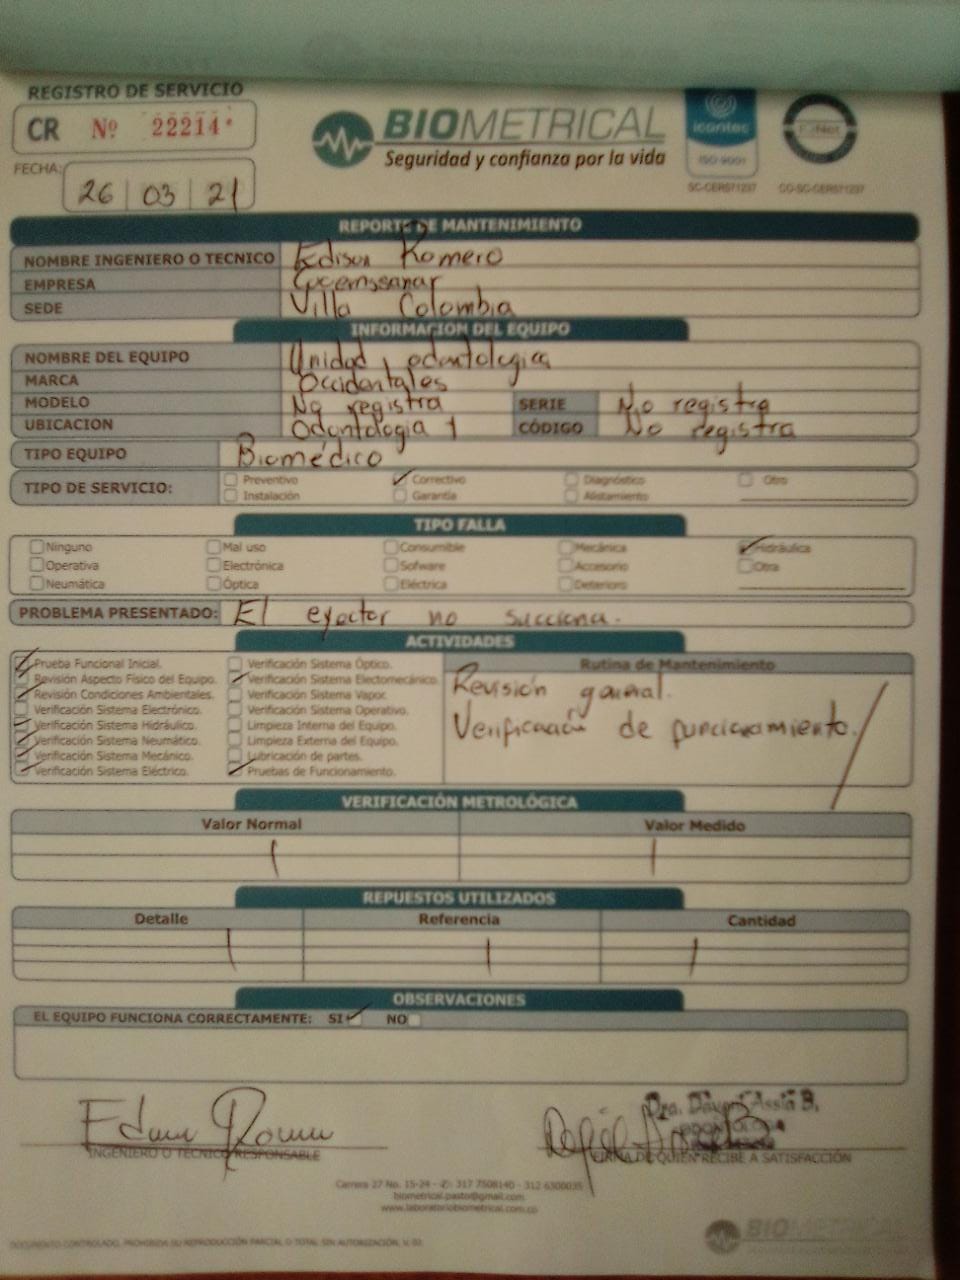 REGISTRO DE SERVICIO
CR Nº 22214
BIOMETRICAL
Seguridad y confianza por la vida
icontec
ISO 9001
SC-CER571237
CO-SC-CER571237
FECHA: 26 03 21
REPORTE DE MANTENIMIENTO
NOMBRE INGENIERO O TECNICO Edison Romero
EMPRESA
SEDE Villa Colombia
INFORMACION DEL EQUIPO
NOMBRE DEL EQUIPO Unidad odontologica
MARCA Occidentales
MODELO No registra SERIE No registra
UBICACION Odontologia 1 CÓDIGO No registra
TIPO EQUIPO Biomédico
TIPO DE SERVICIO: Preventivo Correctivo Diagnóstico Otro
Instalación Garantía Alistamiento
TIPO FALLA
Ninguno Mal uso Consumible Mecánica Hidráulica
Operativa Electrónica Sofware Accesorio Otra
Neumática Óptica Eléctrica Deterioro
PROBLEMA PRESENTADO: El eyector no succiona.
ACTIVIDADES
Prueba Funcional Inicial.
Revisión Aspecto Físico del Equipo.
Revisión Condiciones Ambientales.
Verificación Sistema Electrónico.
Verificación Sistema Hidráulico.
Verificación Sistema Neumático.
Verificación Sistema Mecánico.
Verificación Sistema Eléctrico.
Verificación Sistema Óptico.
Verificación Sistema Electomecánico.
Verificación Sistema Vapor.
Verificación Sistema Operativo.
Limpieza Interna del Equipo.
Limpieza Externa del Equipo.
Lubricación de partes.
Pruebas de Funcionamiento.
Rutina de Mantenimiento
Revisión general.
Verificación de funcionamiento.
VERIFICACIÓN METROLÓGICA
Valor Normal Valor Medido
REPUESTOS UTILIZADOS
Detalle Referencia Cantidad
OBSERVACIONES
EL EQUIPO FUNCIONA CORRECTAMENTE: SI NO
Dra. Assia B.
INGENIERO O TECNICO RESPONSABLE
FIRMA DE QUIEN RECIBE A SATISFACCIÓN
Carrera 27 No. 15-24 - 317 7508140 - 312 6300035
biometrical.pasto@gmail.com
www.laboratoriobiometrical.com.co
BIOMETRICAL
DOCUMENTO CONTROLADO, PROHIBIDA SU REPRODUCCIÓN PARCIAL O TOTAL SIN AUTORIZACIÓN, V. 02